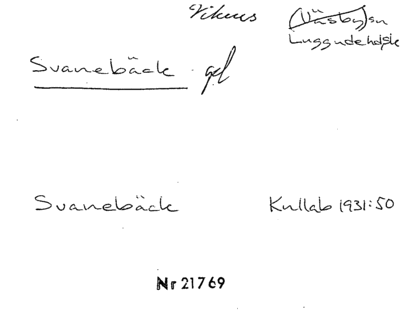 Vikens (Väsby)sn
Luggudehds
Svanebäck gd
Svanebäck Kullab 1931:50
Nr 21769